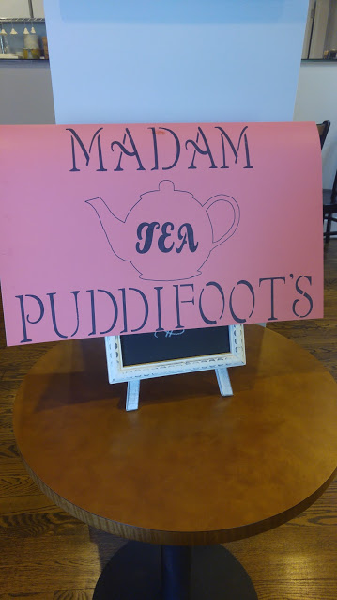 MADAM
TEA
PUDDIFOOT'S